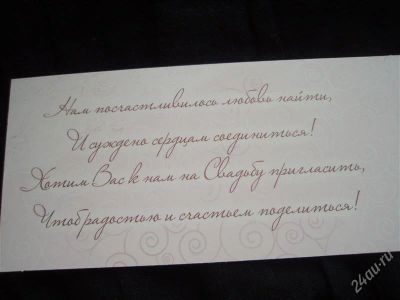 Нам посчастливилось любовь найти,
И суждено сердцам соединиться!
Хотим Вас к нам на Свадьбу пригласить,
Чтоб радостью и счастьем поделиться!
24au.ru